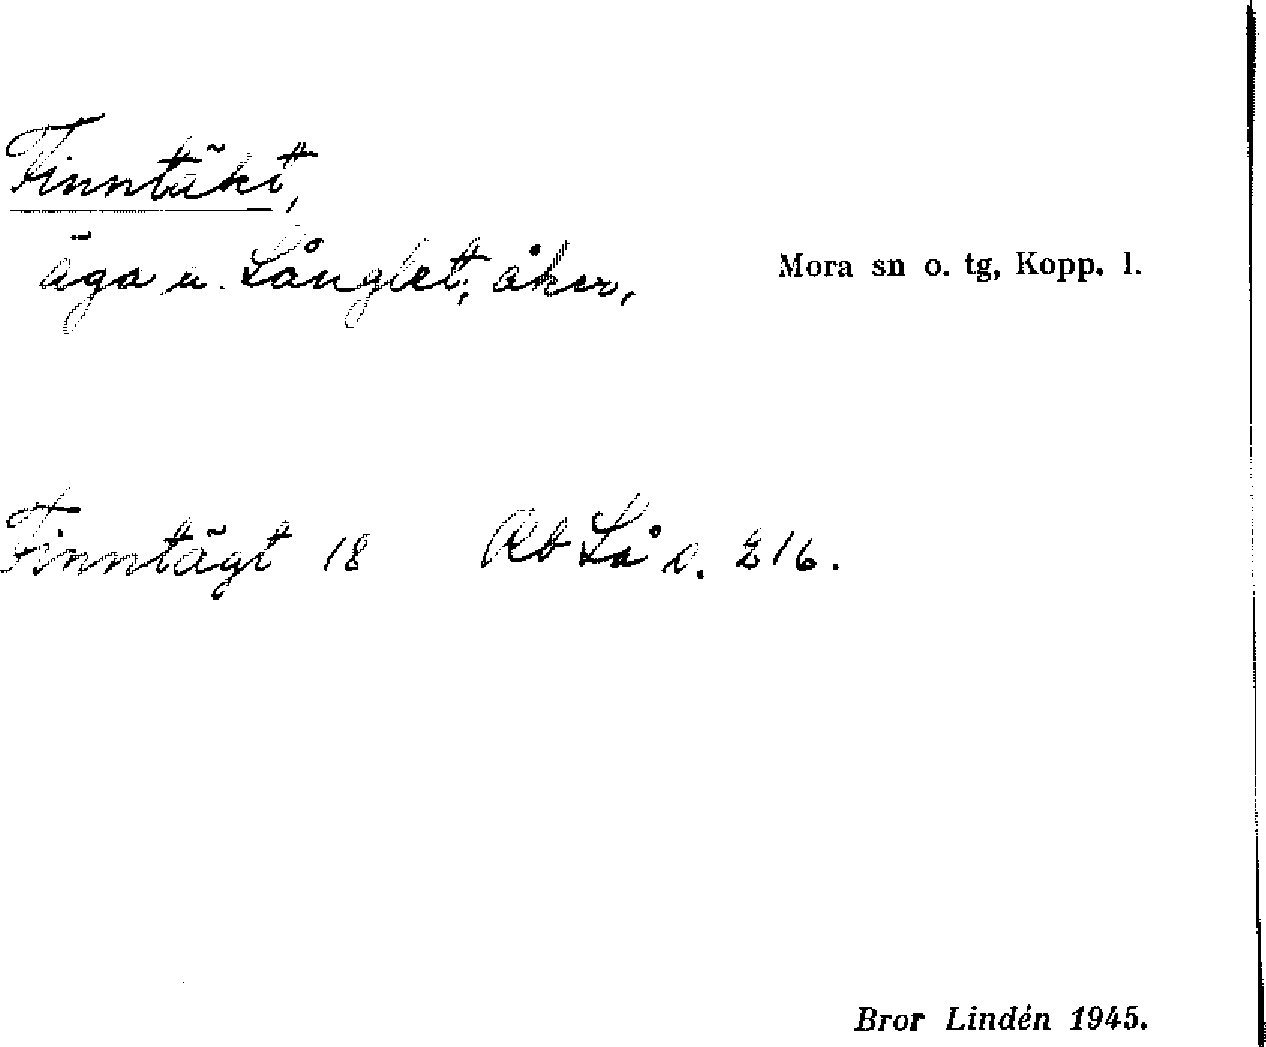 Finntäkt,
äga u. Långlet; åker,
Mora sn o. tg, Kopp. l.
Finntägt 18 Rb Lå s. 216.
Bror Lindén 1945.